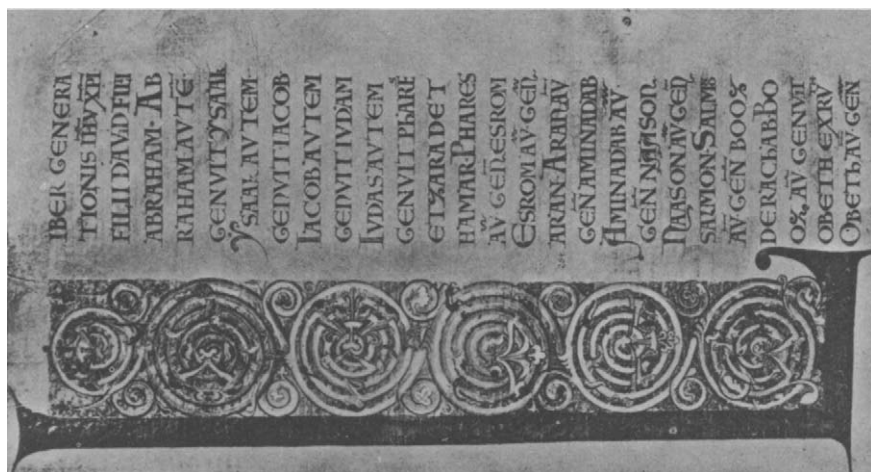 LIBER GENERA
TIONIS IHU XPI
FILII DAVID FILII
ABRAHAM· AB
RAHAM AUTĒ
GENVIT YSAAK
YSAAC AVTEM·
GENVIT· IACOB·
IACOB AVTEM
GENVIT IVDAM
IVDAS AVTEM
GENVIT PHARĒ
ET ZARA DE T
HAMAR· PHARES
AV̄ GEN̄ ESROM
ESROM AV̄· GEN̄
ARAN· ARAN AV̄
GEN̄ AMINADAB
AMINADAB AV̄·
GEN̄ NAASON·
NAASON AV̄ GEN̄
SALMON· SALM̄
AV̄ GEN̄ BOOZ
DE RACHAB· BO
OZ· AV̄ GENVIT
OBETH EX RV
OBETH· AV̄ GEN̄